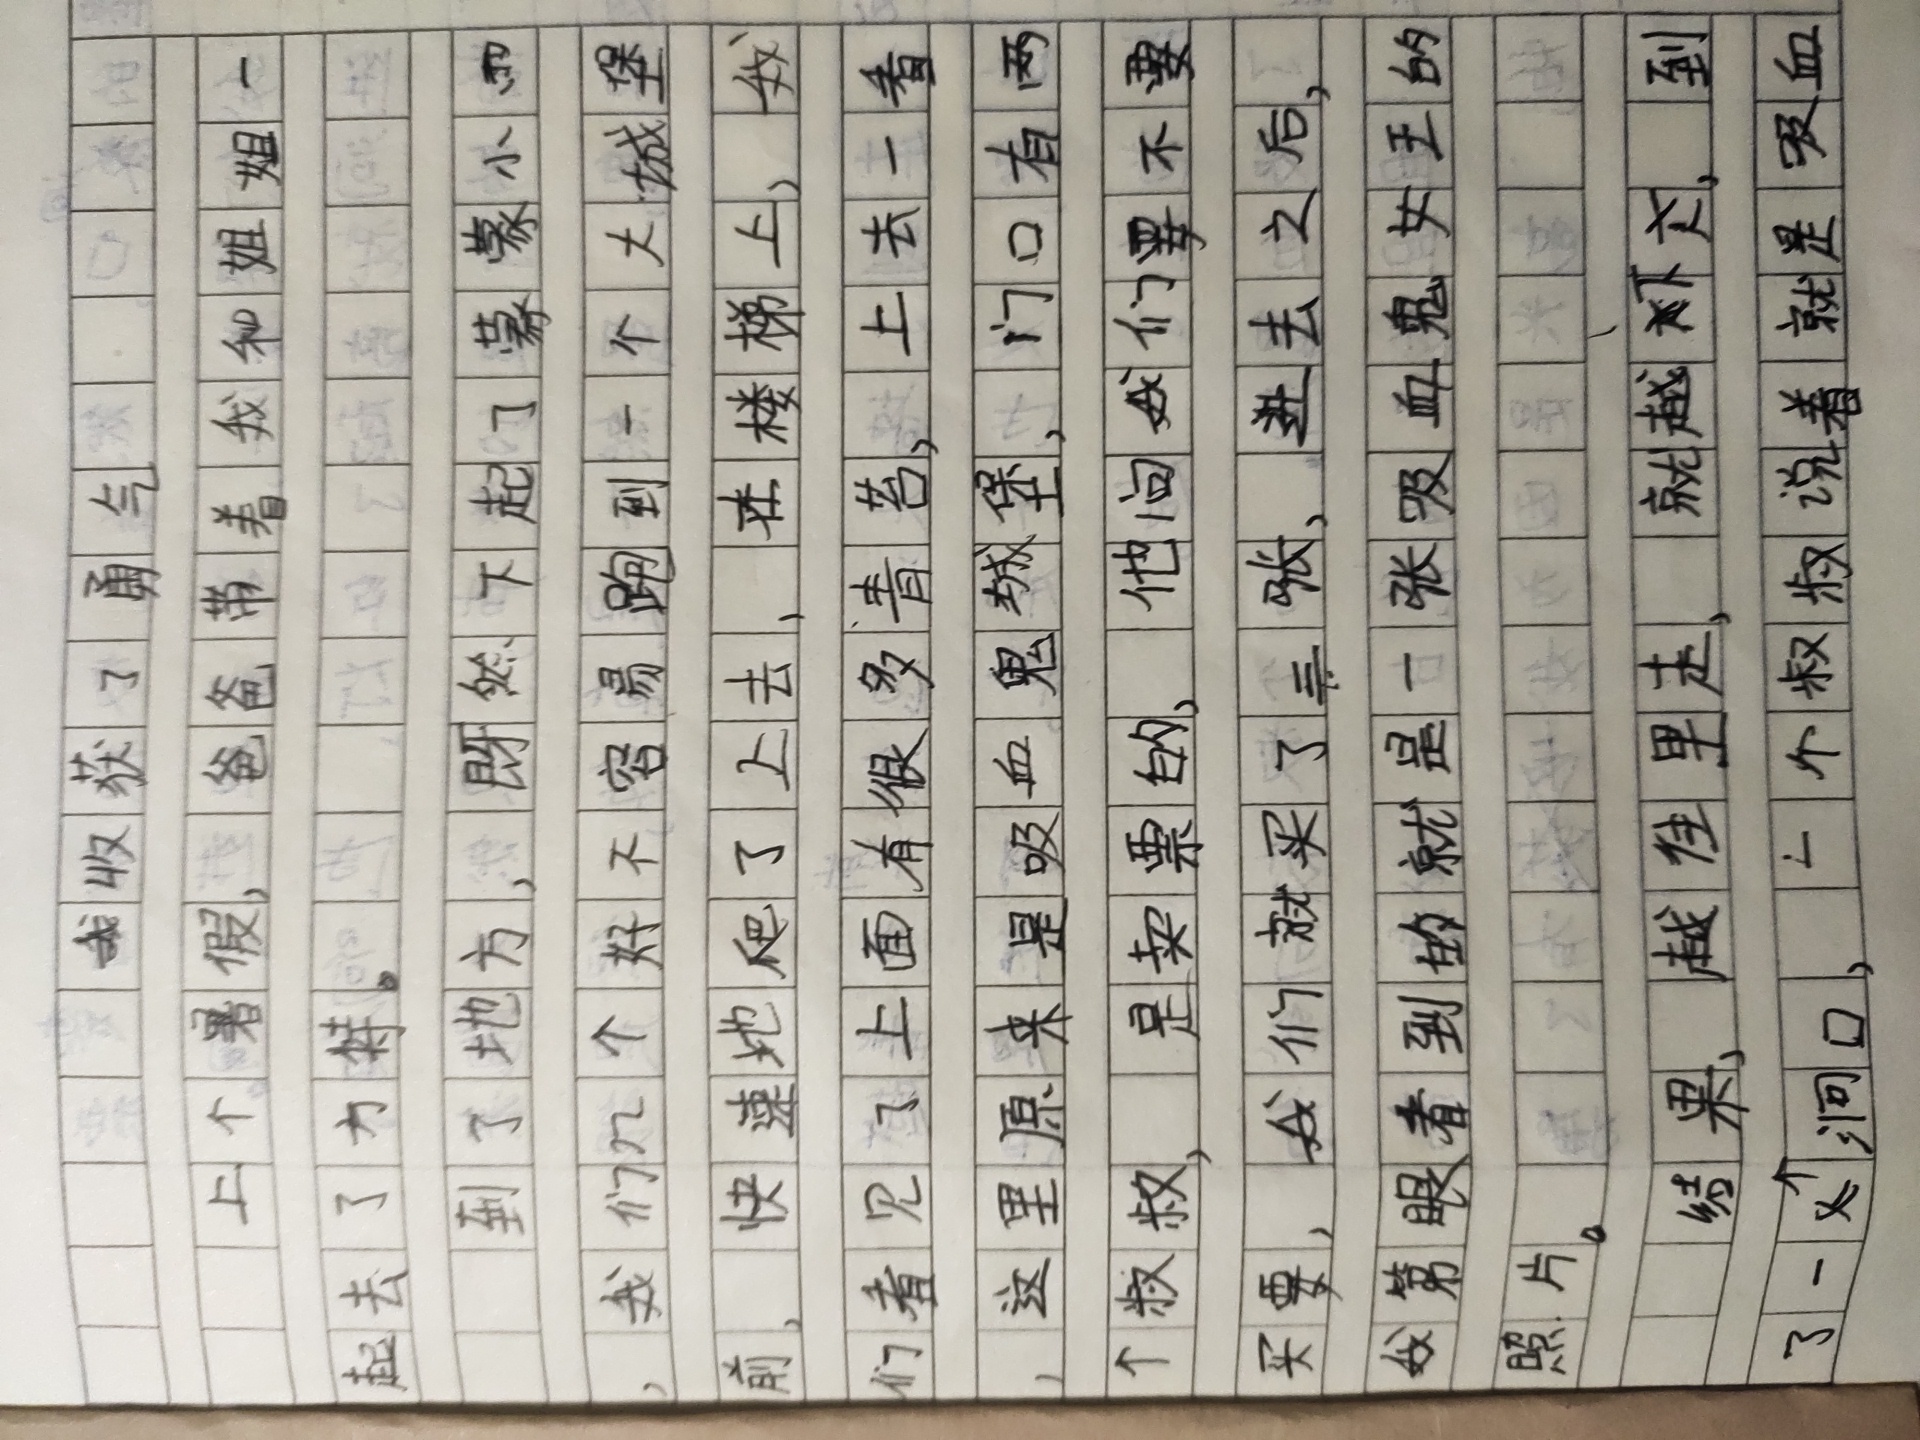 我收获了勇气
上个暑假，爸爸带着我和姐姐一
起去了方特。
到了地方，既然下起了蒙蒙小雨
，我们几个好不容易跑到一个大城堡
前，快速地爬了上去，在楼梯上，我
们看见了上面有很多青苔，上去一看
，这里原来是吸血鬼城堡，门口有两
个叔叔，是卖票的，他问我们要不要
买要，我们就买了三张，进去之后，
我第眼看到的就是一张吸血鬼女王的
照片。
结果，越往里走，就越吓人，到
了一个洞口，一个叔叔说着就是吸血